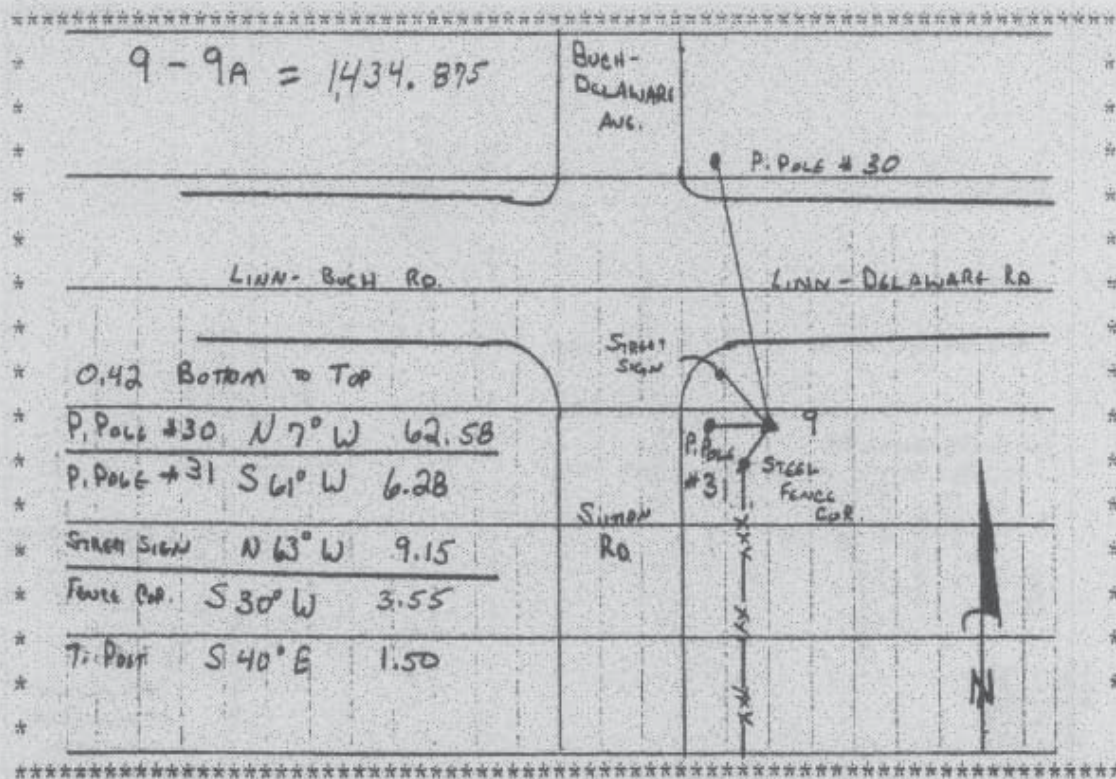 9 - 9A = 1,434.875
BUCH-
DELAWARE
AVE.
P. POLE # 30
LINN - BUCH RD.
LINN - DELAWARE RD
STREET
SIGN
0.42 BOTTOM TO TOP
P. POLE #30 N 7° W 62.58
P. POLE #31 S 61° W 6.28
STREET SIGN N 63° W 9.15
FENCE COR. S 30° W 3.55
T. POST S 40° E 1.50
9
P. POLE
#31
STEEL
FENCE
COR.
RD
N